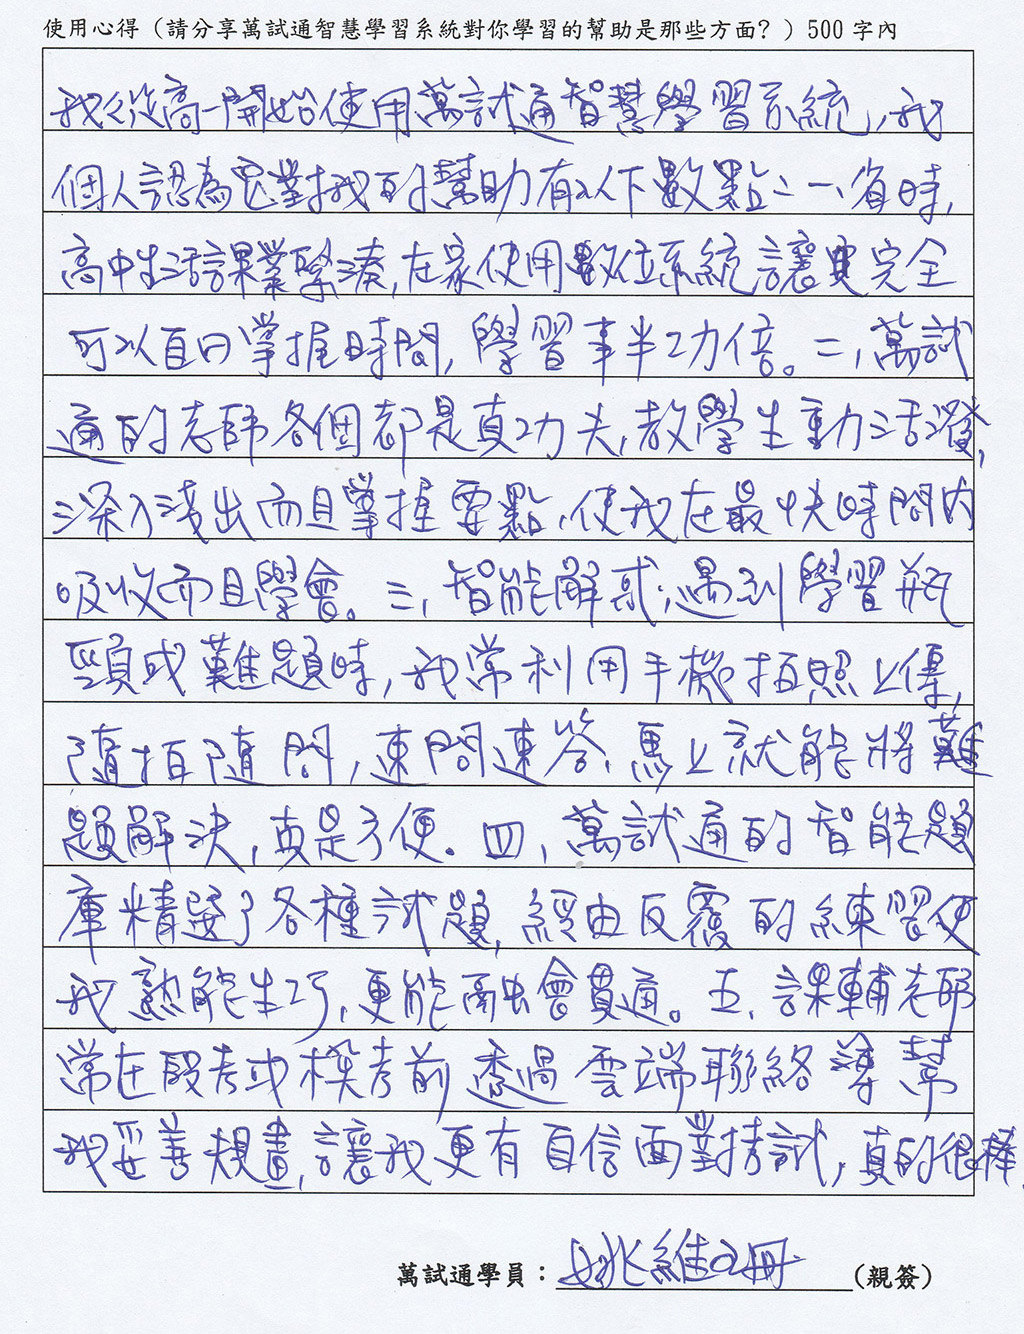 使用心得（請分享萬試通智慧學習系統對你學習的幫助是那些方面？）500 字內
我從高一開始使用萬試通智慧學習系統,我
個人認為它對我的幫助有以下數點：一、省時,
高中生活課業緊湊,在家使用數位系統讓我完全
可以自由掌握時間,學習事半功倍。二、萬試
通的老師各個都是真功夫,教學生動活潑,
深入淺出而且掌握要點,使我在最快時間內
吸收而且學會。三、智能解惑;遇到學習瓶
頸或難題時,我常利用手機拍照上傳,
隨拍隨問,速問速答,馬上就能將難
題解決,真是方便。四、萬試通的智能題
庫精選了各種試題,經由反覆的練習使
我熟能生巧,更能融會貫通。五、課輔老師
常在段考或模考前透過雲端聯絡簿幫
我妥善規畫,讓我更有自信面對考試,真的很棒.
萬試通學員：姚維 (親簽)